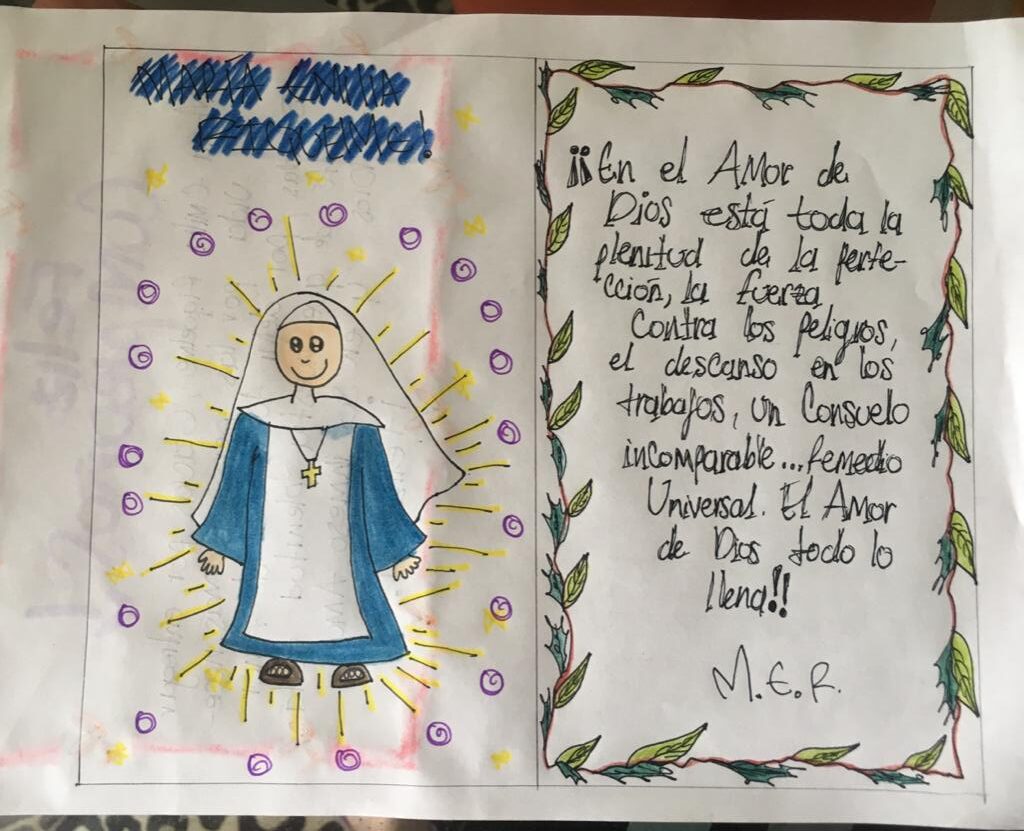 MARÍA EMILIA
RIQUELME!
¡¡En el Amor de
Dios está toda la
plenitud de la perfe-
cción, la fuerza
Contra los peligros,
el descanso en los
trabajos, un Consuelo
incomparable... Remedio
Universal. El Amor
de Dios todo lo
llena!!
M.E.R.